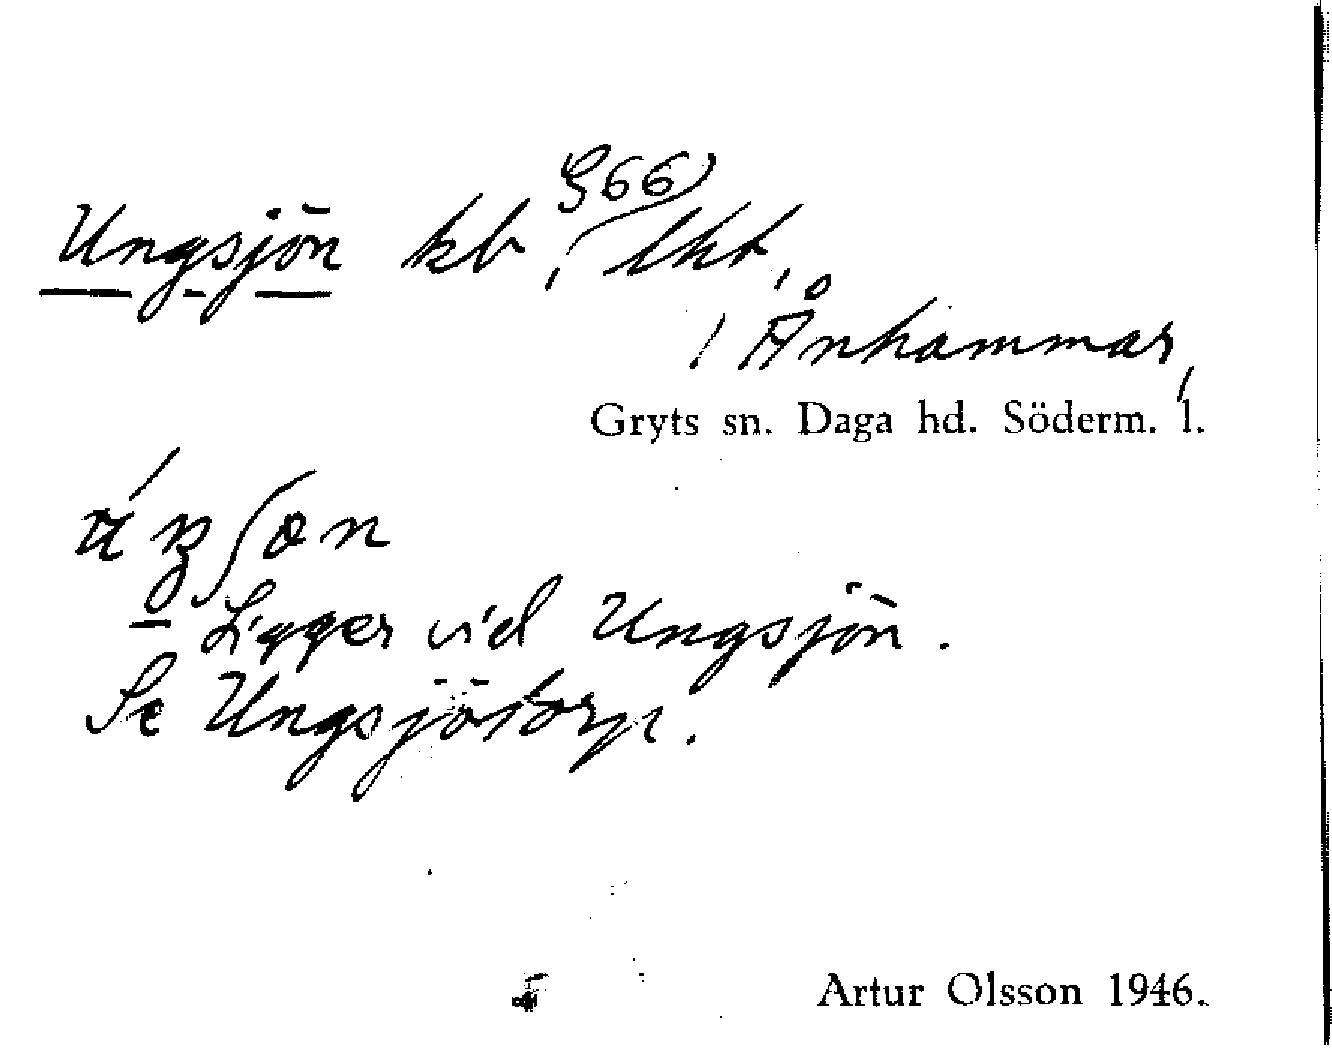 G66)
Ungsjön kb, lht,
i Ånhammar,
Gryts sn. Daga hd. Söderm. l.
Ligger vid Ungsjön.
Se Ungsjötorp.
Artur Olsson 1946.